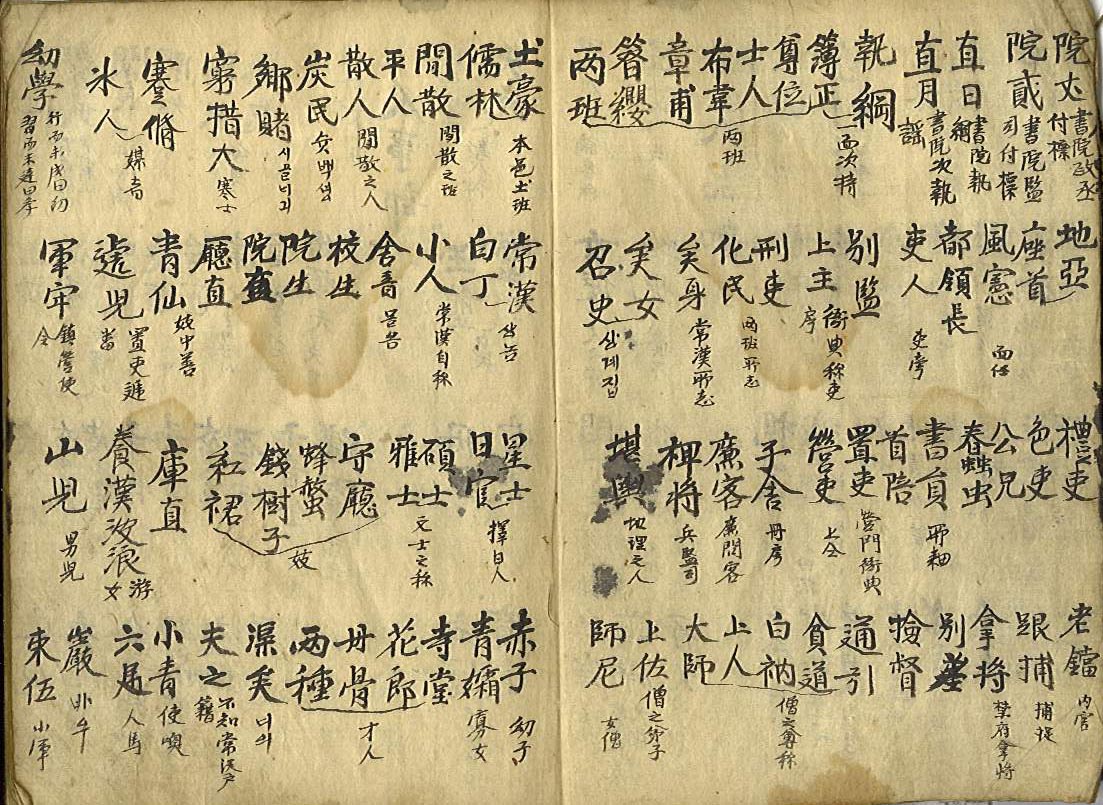 院丈 書院政丞付標
院貳 書院監司付標
直日 書院執綱
直月 書院次執
執綱
簿正 面次持
尊位
士人
布韋
章甫
簪纓
两班 两班
地亞
座首
風憲 面任
都領長
吏人 吏房
別監
上主 衙典称吏房
刑吏
化民 两班所志
矣身 常漢所志
矣女
召史 상계집
禮吏
色吏
公兄
春䖝
書員
首陪
置吏 營門衙典
營吏 上仝
子舍 冊房
廉客 廉問客
裨將 兵監司
堪輿 地理之人
老鐺 内官
跟捕 捕捉
拿將 禁府拿將
別差
撿督
通引
貧道
白衲
上人 僧之尊称
大師
上佐 僧之弟子
師尼 女僧
土豪 本邑土班
儒林
閒散 閒散之班
平人
散人 閒散之人
炭民 숫백셩
鄉賭
窮措大 寒士
蹇脩
氷人 媒者
幼學
常漢
白丁 상놈
小人 常漢自称
舍音
校生
院生
院直
廳直
青仙 妓中善
軍牢 鎮營使令
星士
日官 擇日人
碩士
雅士 文士之称
守廳
蜂螫
錢樹子
紅裙 妓
庫直
養漢波浪 游女
山児 男児
赤子 幼子
青孀 寡女
寺堂
花郎
丹骨
两種 才人
渠矣 너의
夫之 不知常漢
小青 使喚
六足 人馬
巖 바우
束伍 小軍